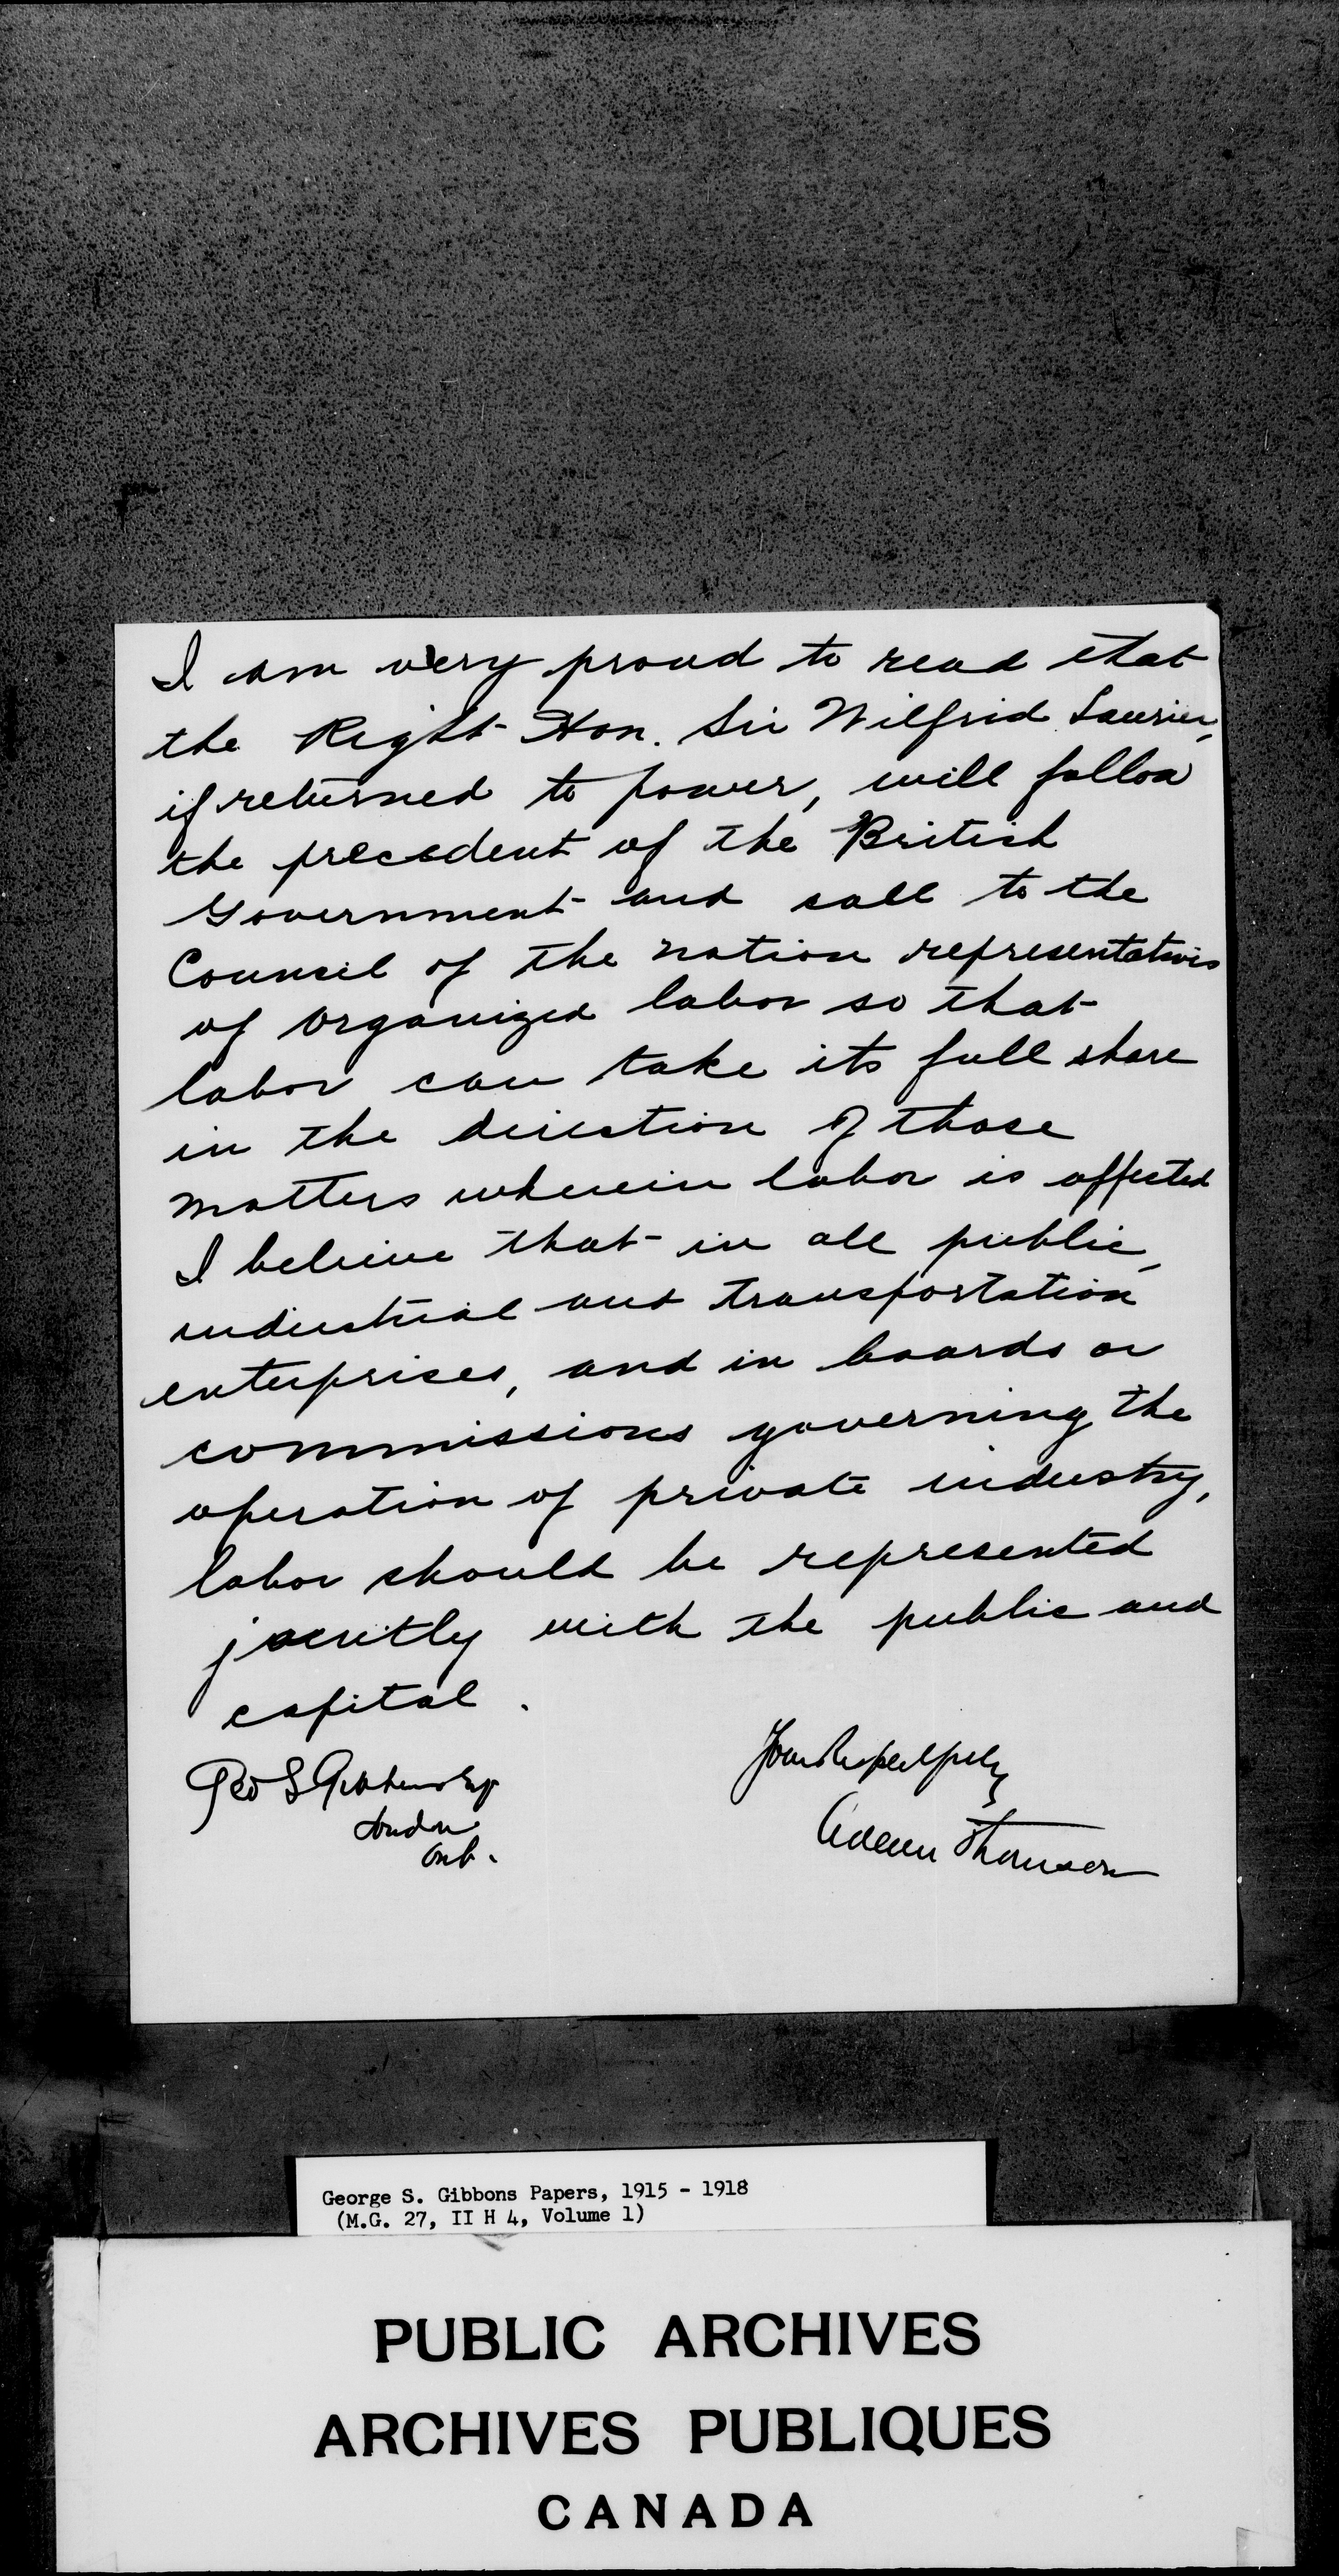 I am very proud to read that
the Right Hon. Sir Wilfrid Laurier,
if returned to power, will follow
the precedent of the British
Government and call to the
Council of the nation representatives
of organized labor so that
labor can take its full share
in the direction of those
matters wherein labor is affected
I believe that in all public,
industrial and transportation
enterprises, and in boards or
commissions governing the
operation of private industry,
labor should be represented
jointly with the public and
capital.
Yours Respectfully
Geo S Gibbons Esq
London
Ont.
Thomson
George S. Gibbons Papers, 1915 - 1918
(M.G. 27, II H 4, Volume 1)
PUBLIC ARCHIVES
ARCHIVES PUBLIQUES
CANADA